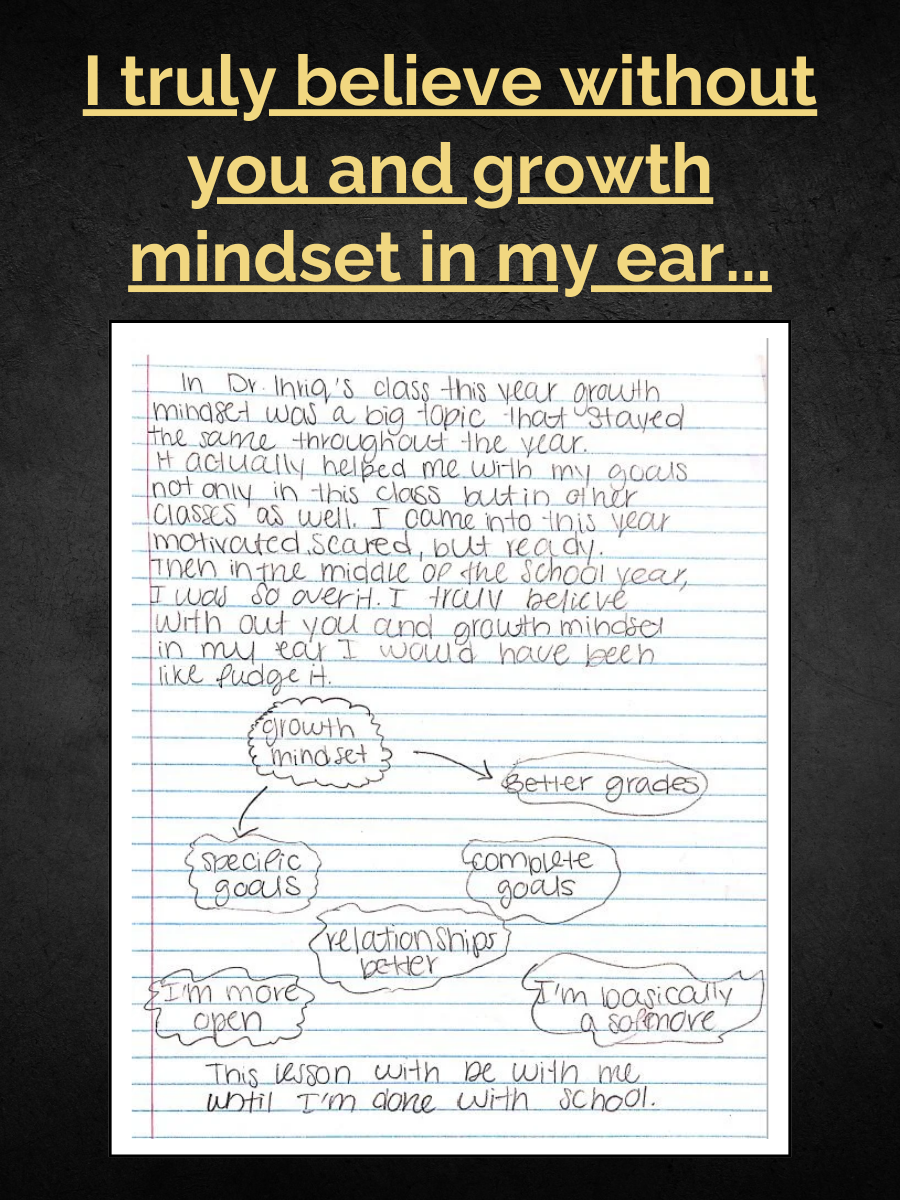 I truly believe without
you and growth
mindset in my ear...
In Dr. Inriq's class this year growth
mindset was a big topic that stayed
the same throughout the year.
It actually helped me with my goals
not only in this class but in other
classes as well. I came into this year
motivated, scared, but ready.
Then in the middle of the school year,
I was so over it. I truly believe
with out you and growth mindset
in my ear I would have been
like fudge it.
growth
mindset
Better grades
specific
goals
complete
goals
relationships
better
I'm more
open
I'm basically
a sofmore
This lesson with be with me
until I'm done with school.